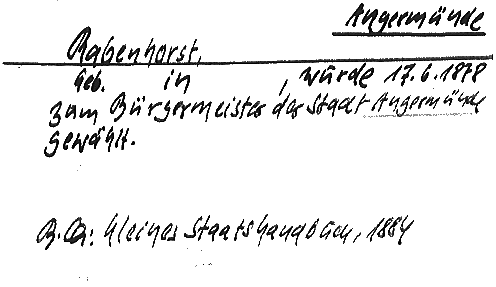 Angermünde
Rabenhorst,
geb. in , wurde 17.6.1878
zum Bürgermeister der Stadt Angermünde
gewählt.
Kleines Staatshandbuch, 1884